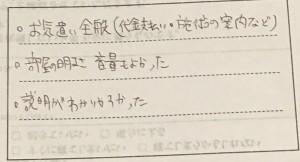 。お気遣い全般(代金支払い・施術の案内など)
。部屋の明るさ 音量もよかった
。説明がわかりやすかった